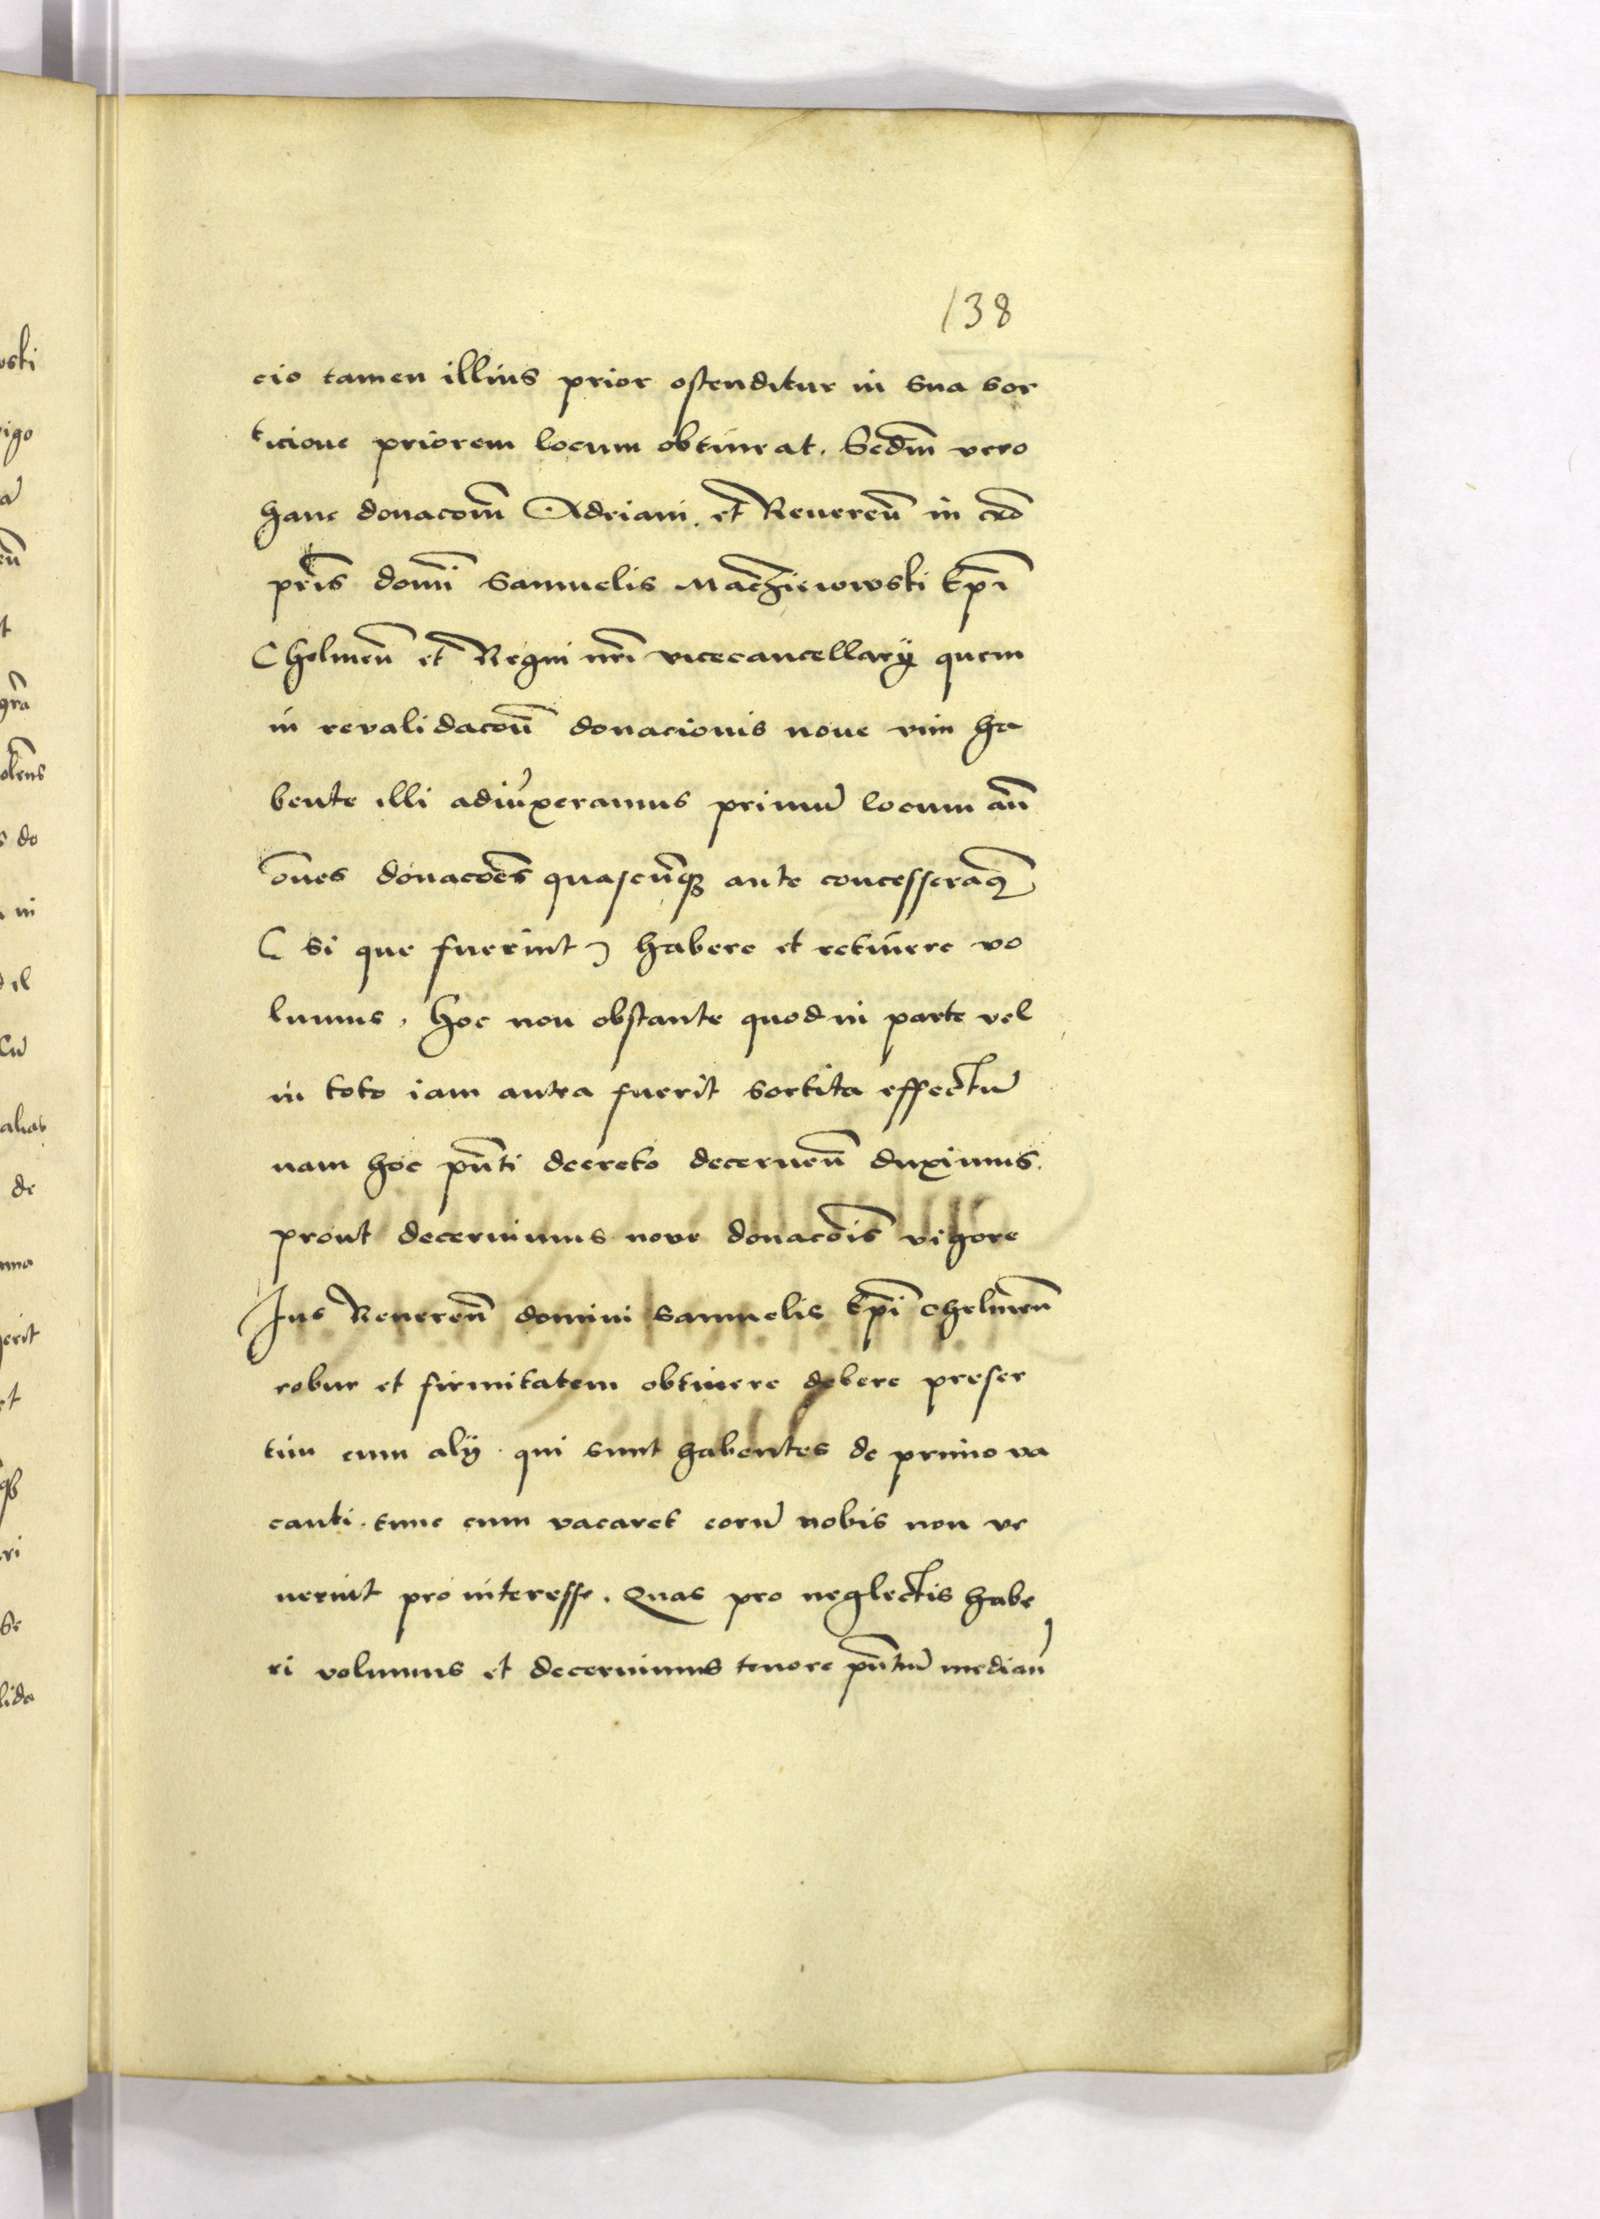 138
cio tamen illius prior ostenditur in sua sor
ticione priorem locum obtineat. Sedm̃ vero
hanc donacom̃ Adriani et Reueren̄ in
pris̃ domĩ Samuelis Maczieiowski Ep̃i
Chelmen̄ et Regni nr̃i vicecancellarÿ quem
in revalidacon̄ donacionis noue vim ha
bente illi adiũxeramus primũ locum an̄
om̃es donacoẽs quascunq̃ȝ ante concesseramꝯ
( si que fuerint ) habere et retinere vo
lumus, hoc non obstante quod in parte vel
in toto iam antea fuerit sortita effectũ
nam hoc pñti decreto decernen̄ duximus.
prout decernimus noue donacoĩs vigore
Ius Reueren̄ domini Samuelis Ep̃i Chelmen̄
robur et firmitatem obtinere debere preser
tim cum alÿ qui sunt habentes de primo va
canti tunc cum vacaret eorũ nobis non ve
nerint pro interesse. Quas pro neglectis habe
ri volumus et decernimus tenore pñtiũ median̄